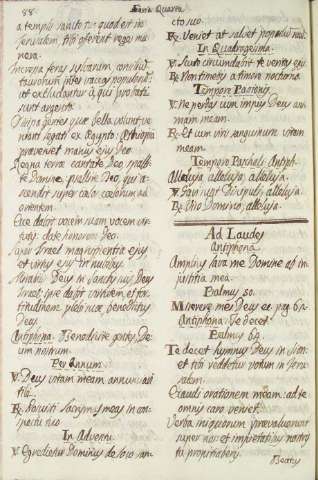 88
Feria Quarta
a templo sancto tuo quod est in
Jerusalem, tibi offerent reges mu
nera.
Increpa feras sylvarum, concilium
taurorum inter vaccas populorum:
ut excludantur ij, qui probati
sunt argento.
Dissipa gentes quæ bella volunt ve
nient legati ex Ægypto: Æthiopia
præveniet manus ejus Deo.
Regna terræ cantate Deo psalli
te Domino, psallite Deo, qui a
scendit super cælos cælorum ad
orientem.
Ecce dabit vocem suam vocem vir
tutis: date honorem Deo
super Israel magnificentia ejus
et virtus ejus in nubibus.
Mirabilis Deus in sanctis suis Deus
Israel ipse dabit virtutem et for
titudinem plebi suæ benedictus
Deus.
Antiphona. Benedicite gentes De
um nostrum.
Per Annum.
℣. Deus vitam meam annuntiavi
tibi.
℟. Posuisti lacrymas meas in con
spectu tuo
In Adventu
℣. Egredietur Dominus de loco san
cto suo.
℟. Veniet ut salvet populum suum
In Quadragesima.
℣. Scuto circumdabit te veritas ejus
℟. Non timebis a timore nocturno
Tempore Passionis
℣. Ne perdas cum impijs Deus ani
mam meam.
℟. Et cum viris sanguinum vitam
meam.
Tempore Paschali Antiph.
Alleluja, alleluja, alleluja.
℣. Gavisi sunt Discipuli, alleluja.
℟. Viso Domino, alleluja.
Ad Laudes
Antiphona.
Amplius lava me Domine ab in
justitia mea.
Psalmus 50.
Miserere mei Deus &c pag 62.
Antiphona: Te decet
Psalmus 64.
Te decet hymnus Deus in Sion:
et tibi reddetur votum in Jeru
salem.
Exaudi orationem meam: ad te
omnis caro veniet.
Verba iniquorum prævaluerunt
super nos: et impietatibus nostris
tu propitiaberis.
Beatus